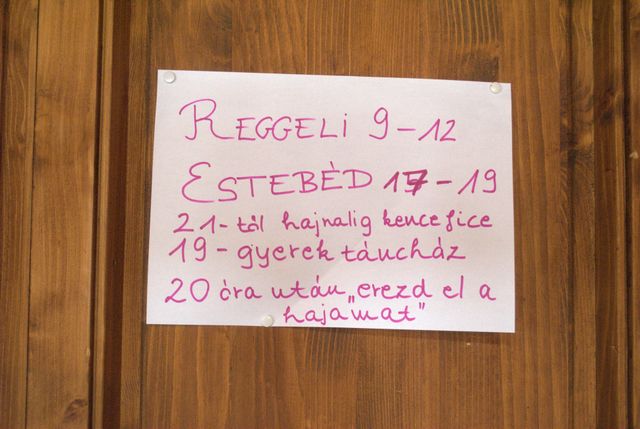 REGGELI 9-12
ESTEBÉD 17-19
21-től hajnalig kencefice
19-gyerek táncház
20 óra után „erezd el a
hajamat"